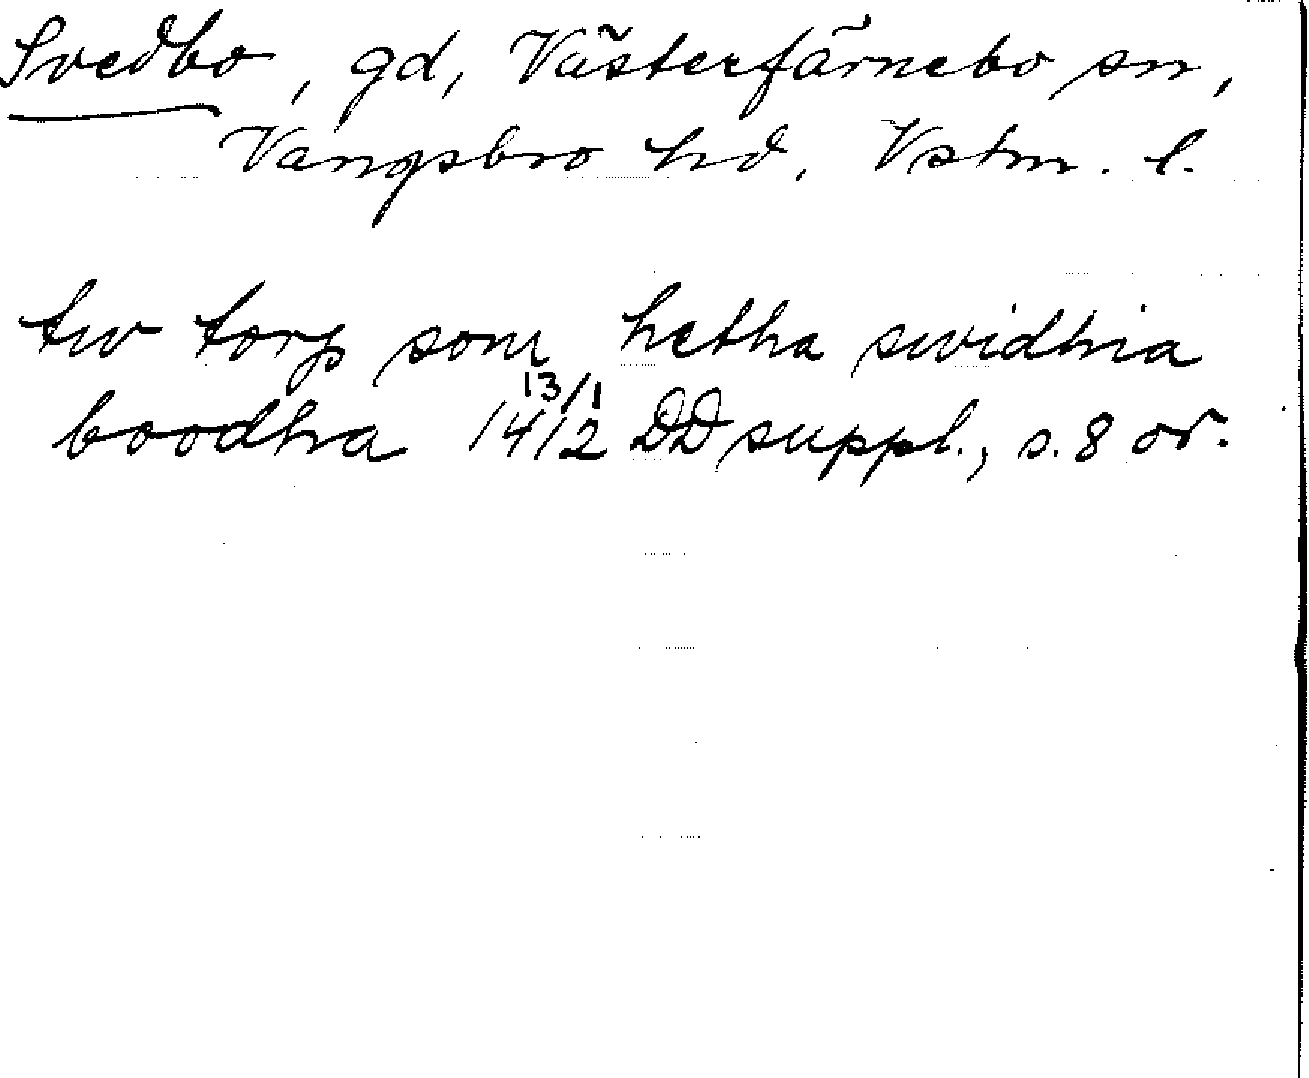 Svedbo, gd, Västerfärnebo sn,
Vangsbro hd, Vstm. l.
tw torp som hetha swidhia
boodha 13/1 1412 DD suppl., s. 8 or.